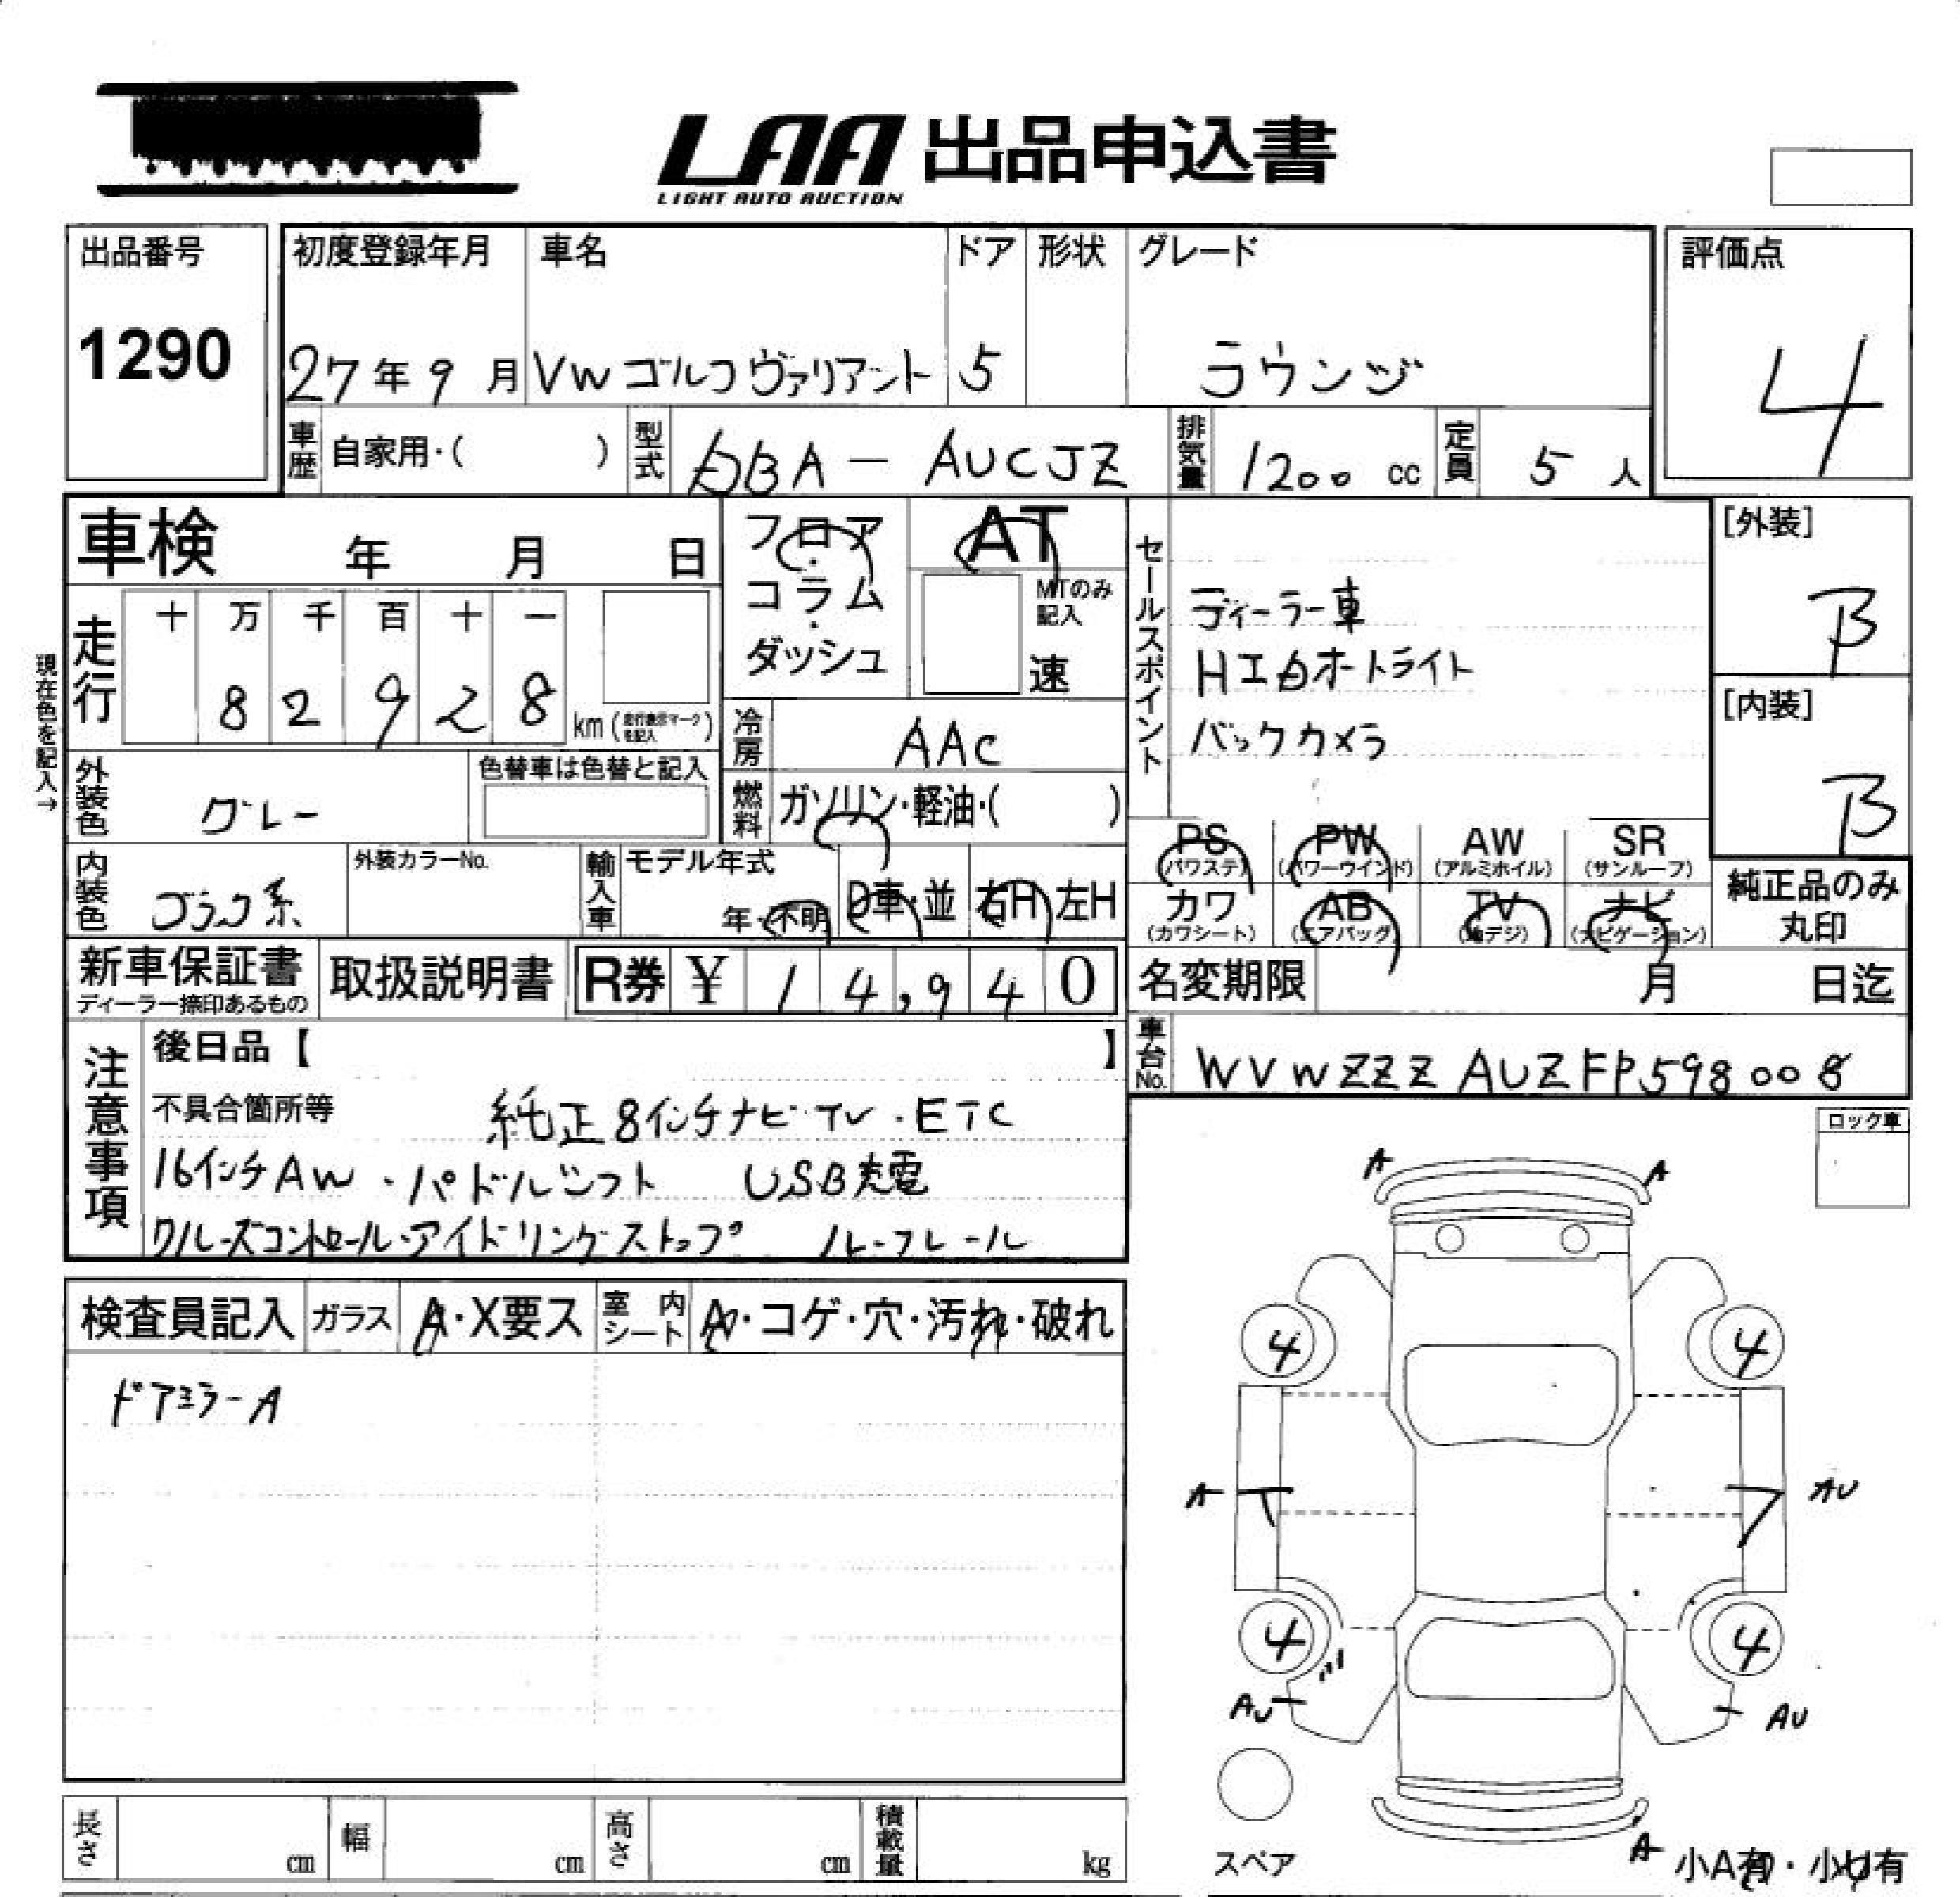 LAA 出品申込書
LIGHT AUTO AUCTION
出品番号
1290
初度登録年月 車名 ドア 形状 グレード
27年9月 VWゴルフヴァリアント 5 ラウンジ
評価点
4
車歴 自家用・( ) 型式 DBA-AUCJZ 排気量 1200 cc 定員 5 人
車検 年 月 日
フロア・コラム・ダッシュ
AT
MTのみ記入
速
セールスポイント
ディーラー車
HIDオートライト
バックカメラ
[外装]
B
[内装]
B
現在色を記入→
走行 十 万 千 百 十 一
8 2 9 2 8 km (走行表示マークを記入)
冷房 AAC
外装色 グレー
色替車は色替と記入
燃料 ガソリン・軽油・( )
内装色 ブラック系
外装カラーNo.
輸入車 モデル年式
年・不明 D車・並 右H 左H
PS (パワステ) PW (パワーウインド) AW (アルミホイル) SR (サンルーフ)
カワ (カワシート) AB (エアバッグ) TV (地デジ) ナビ (ナビゲーション)
純正品のみ丸印
新車保証書 ディーラー捺印あるもの 取扱説明書 R券 ¥ 14,940
名変期限 月 日迄
車台No. WVWZZZAUZFP598008
注意事項
後日品【 】
不具合箇所等 純正8インチナビ・TV・ETC
16インチAW・パドルシフト USB充電
クルーズコントロール・アイドリングストップ ルーフレール
ロック車
検査員記入 ガラス A・X要ス 室内シート A・コゲ・穴・汚れ・破れ
ドアミラーA
A A
4 4
A AU
4 4
AU AU
スペア
A
小A有・小U有
長さ cm 幅 cm 高さ cm 積載量 kg